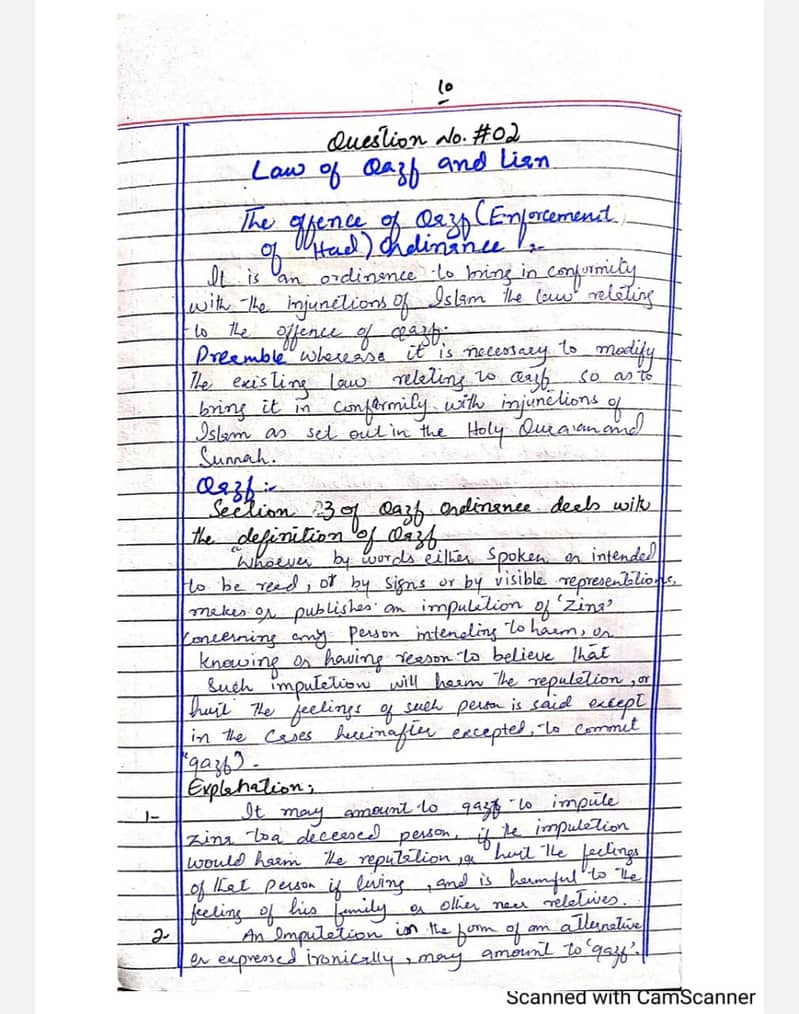 10
Question No. #02
Law of Qazf and Lian
The offence of Qazf (Enforcement
of Had) Ordinance :-
It is an ordinance to bring in conformity
with the injunctions of Islam the law relating
to the offence of qazf.
Preamble wherease it is necessary to modify
the existing law relating to Qazf so as to
bring it in conformity with injunctions of
Islam as set out in the Holy Quraian and
Sunnah.
Qazf :-
Section 3 of Qazf ordinance deals with
the definition of Qazf
"Whoever by words either spoken or intended
to be read, or by signs or by visible representations,
makes or publishes an imputation of 'Zina'
concerning any person intending to harm, or
knowing or having reason to believe that
such imputation will harm the reputation, or
hurt the feelings of such person is said except
in the cases hereinafter excepted, to commit
"qazf).
Explanation;
1- It may amount to qazf to impute
zina to a deceased person, if the imputation
would harm the reputation, or hurt the feelings
of that person if living, and is harmful to the
feeling of his family or other near relatives.
2- An Imputation in the form of an alternative
or expressed ironically, may amount to 'qazf'.
Scanned with CamScanner